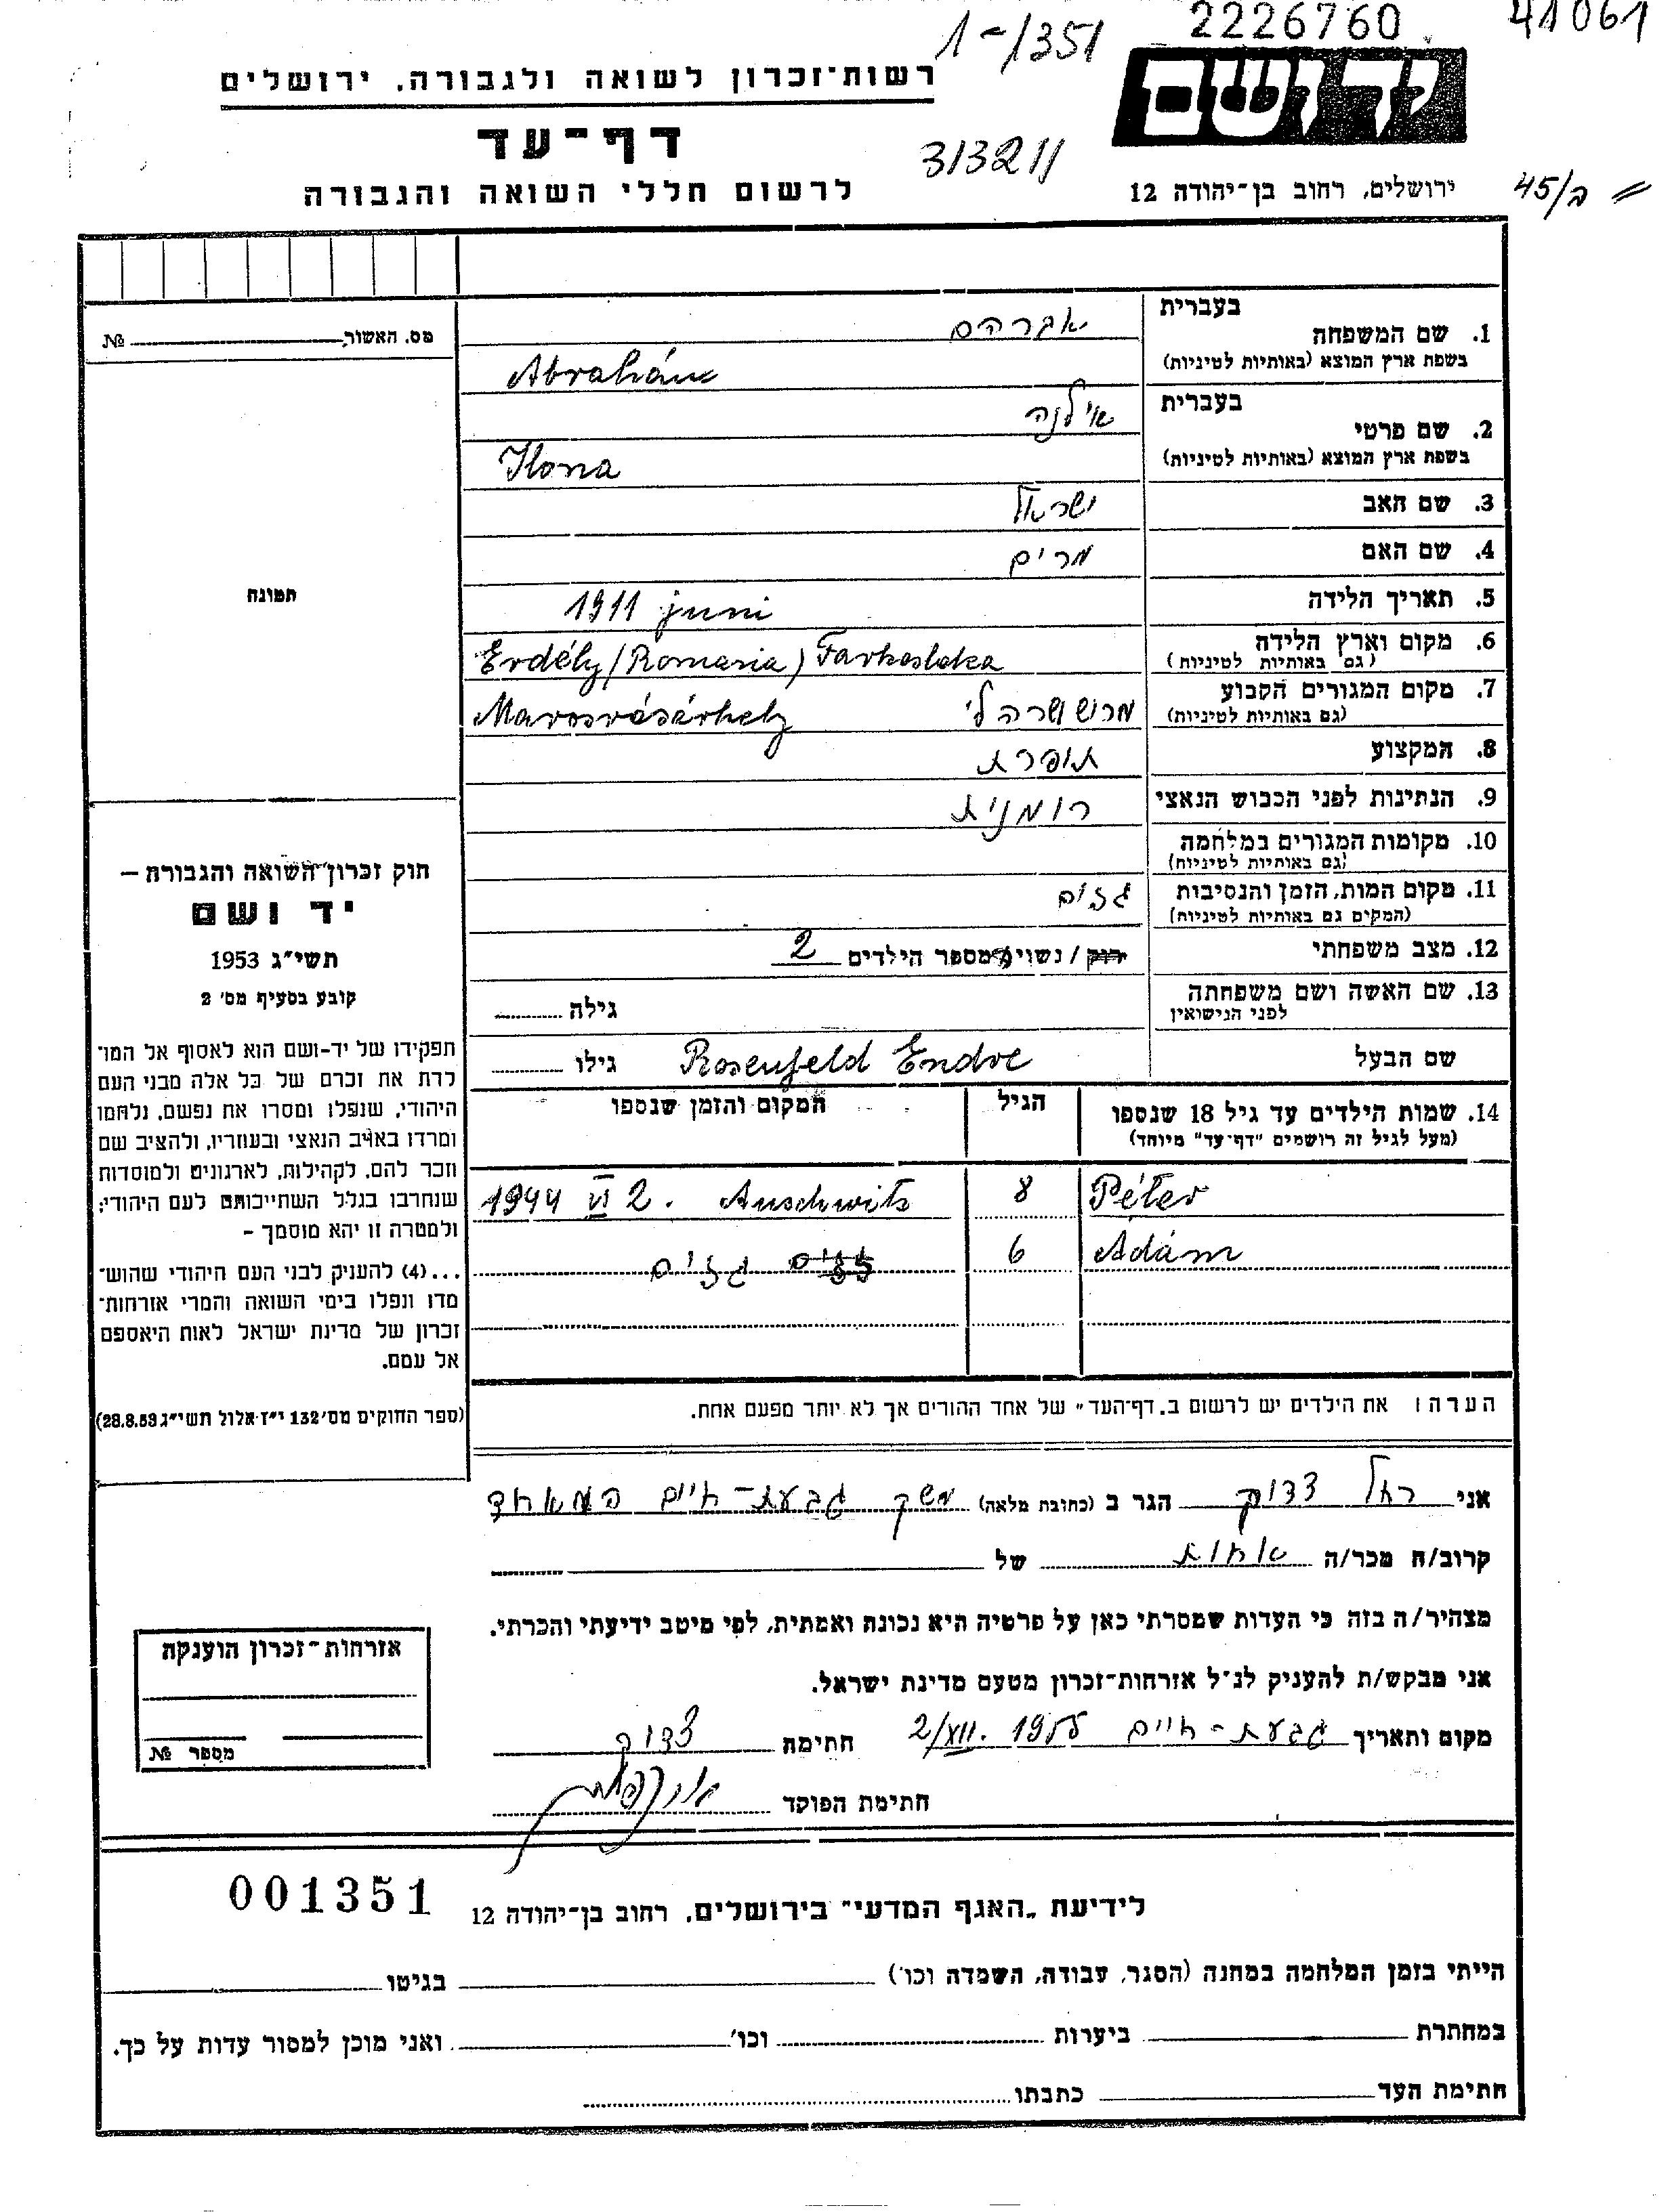 1-1351 2226760 41061
רשות־זכרון לשואה ולגבורה, ירושלים
יד ושם
דף־עד
313211
לרשום חללי השואה והגבורה
ירושלים, רחוב בן־יהודה 12
45/ב
בעברית
1. שם המשפחה אברהם
בשפת ארץ המוצא (באותיות לטיניות) Abrahám
בעברית
2. שם פרטי אילנה
בשפת ארץ המוצא (באותיות לטיניות) Ilona
3. שם האב ישראל
4. שם האם מרים
5. תאריך הלידה 1911 juni
6. מקום וארץ הלידה Erdély (Romania) Farkaslaka
(גם באותיות לטיניות)
7. מקום המגורים הקבוע מרוששרהלי Marosvásárhely
(גם באותיות לטיניות)
8. המקצוע תופרת
9. הנתינות לפני הכבוש הנאצי רומנית
10. מקומות המגורים במלחמה
(גם באותיות לטיניות)
11. מקום המות, הזמן והנסיבות גזים
(המקום גם באותיות לטיניות)
12. מצב משפחתי רווק / נשוי מספר הילדים 2
13. שם האשה ושם משפחתה גילה
לפני הנישואין
שם הבעל Rosenfeld Endre גילו
14. שמות הילדים עד גיל 18 שנספו הגיל המקום והזמן שנספו
(מעל לגיל זה רושמים "דף־עד" מיוחד)
Péter 8 1944 VI 2. Auschwits
Adám 6 גזים
הערה: את הילדים יש לרשום ב„דף־העד" של אחד ההורים אך לא יותר מפעם אחת.
מס. האשור, №
תמונה
חוק זכרון־השואה והגבורה –
יד ושם
תשי"ג 1953
קובע בסעיף מס' 2
תפקידו של יד-ושם הוא לאסוף אל המו־
לדת את זכרם של כל אלה מבני העם
היהודי, שנפלו ומסרו את נפשם, נלחמו
ומרדו באויב הנאצי ובעוזריו, ולהציב שם
וזכר להם, לקהילות, לארגונים ולמוסדות
שנחרבו בגלל השתייכותם לעם היהודי;
ולמטרה זו יהא מוסמך –
...(4) להעניק לבני העם היהודי שהוש־
מדו ונפלו בימי השואה והמרי אזרחות־
זכרון של מדינת ישראל לאות היאספם
אל עמם.
(ספר החוקים מס' 132 י"ז אלול תשי"ג 28.8.53)
אני רחל צדוק הגר ב (כתובת מלאה) משק גבעת-חיים המאחד
קרוב/ה מכר/ה אחות של
מצהיר/ה בזה כי העדות שמסרתי כאן על פרטיה היא נכונה ואמתית, לפי מיטב ידיעתי והכרתי.
אני מבקש/ת להעניק לנ"ל אזרחות־זכרון מטעם מדינת ישראל.
מקום ותאריך גבעת-חיים 2/XII. 1955 חתימת צדוק
חתימת הפוקד
אזרחות־זכרון הוענקה
מספר №
001351
לידיעת „האגף המדעי" בירושלים, רחוב בן־יהודה 12
הייתי בזמן המלחמה במחנה (הסגר, עבודה, השמדה וכו') בגיטו
במחתרת ביערות וכו' ואני מוכן למסור עדות על כך.
חתימת העד כתבתו